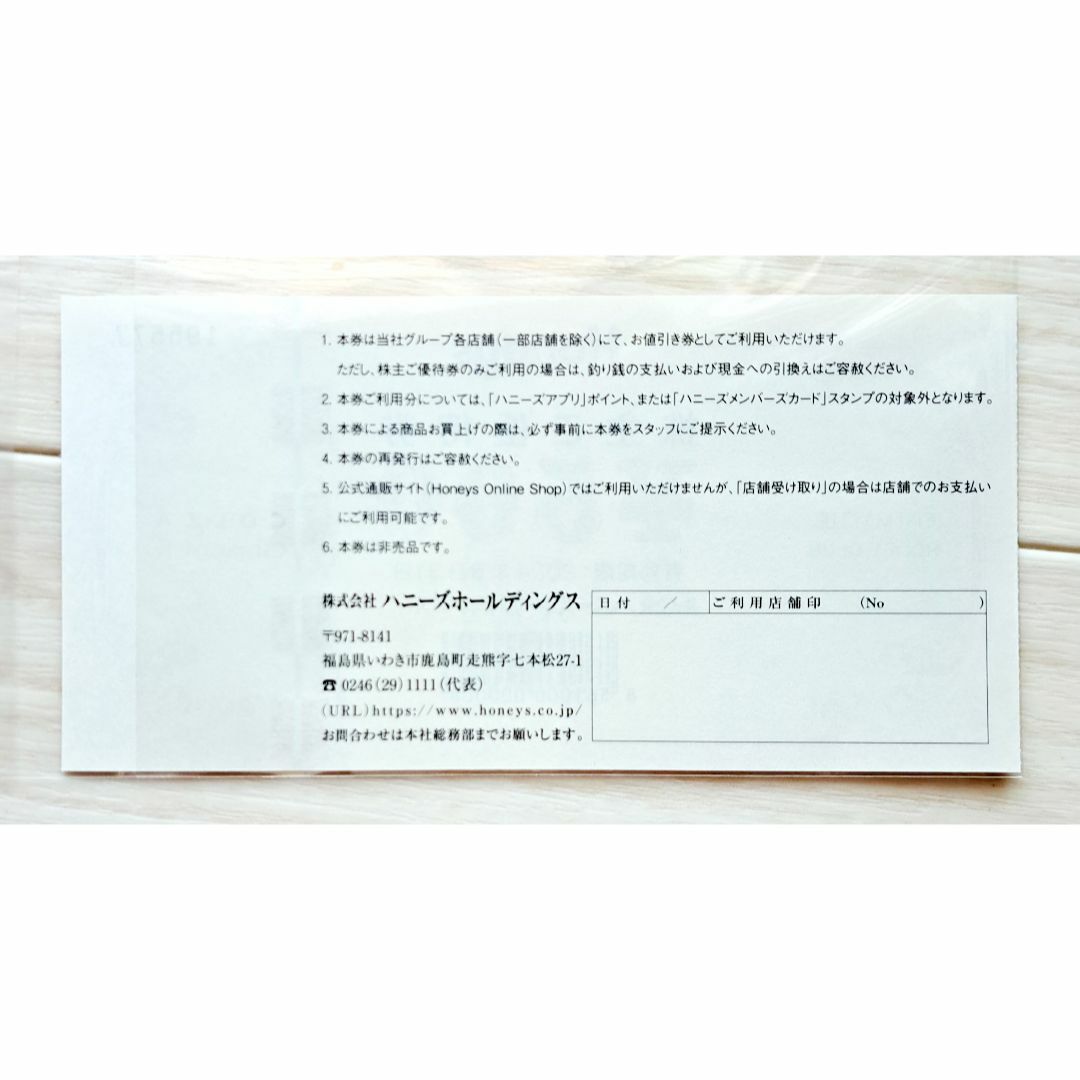 1. 本券は当社グループ各店舗(一部店舗を除く)にて、お値引き券としてご利用いただけます。
ただし、株主ご優待券のみご利用の場合は、釣り銭の支払いおよび現金への引換えはご容赦ください。
2. 本券ご利用分については、「ハニーズアプリ」ポイント、または「ハニーズメンバーズカード」スタンプの対象外となります。
3. 本券による商品お買上げの際は、必ず事前に本券をスタッフにご提示ください。
4. 本券の再発行はご容赦ください。
5. 公式通販サイト(Honeys Online Shop)ではご利用いただけませんが、「店舗受け取り」の場合は店舗でのお支払い
にご利用可能です。
6. 本券は非売品です。
株式会社 ハニーズホールディングス
〒971-8141
福島県いわき市鹿島町走熊字七本松27-1
☎ 0246(29)1111(代表)
(URL)https://www.honeys.co.jp/
お問合わせは本社総務部までお願いします。
日付 ／ ご利用店舗印 (No )